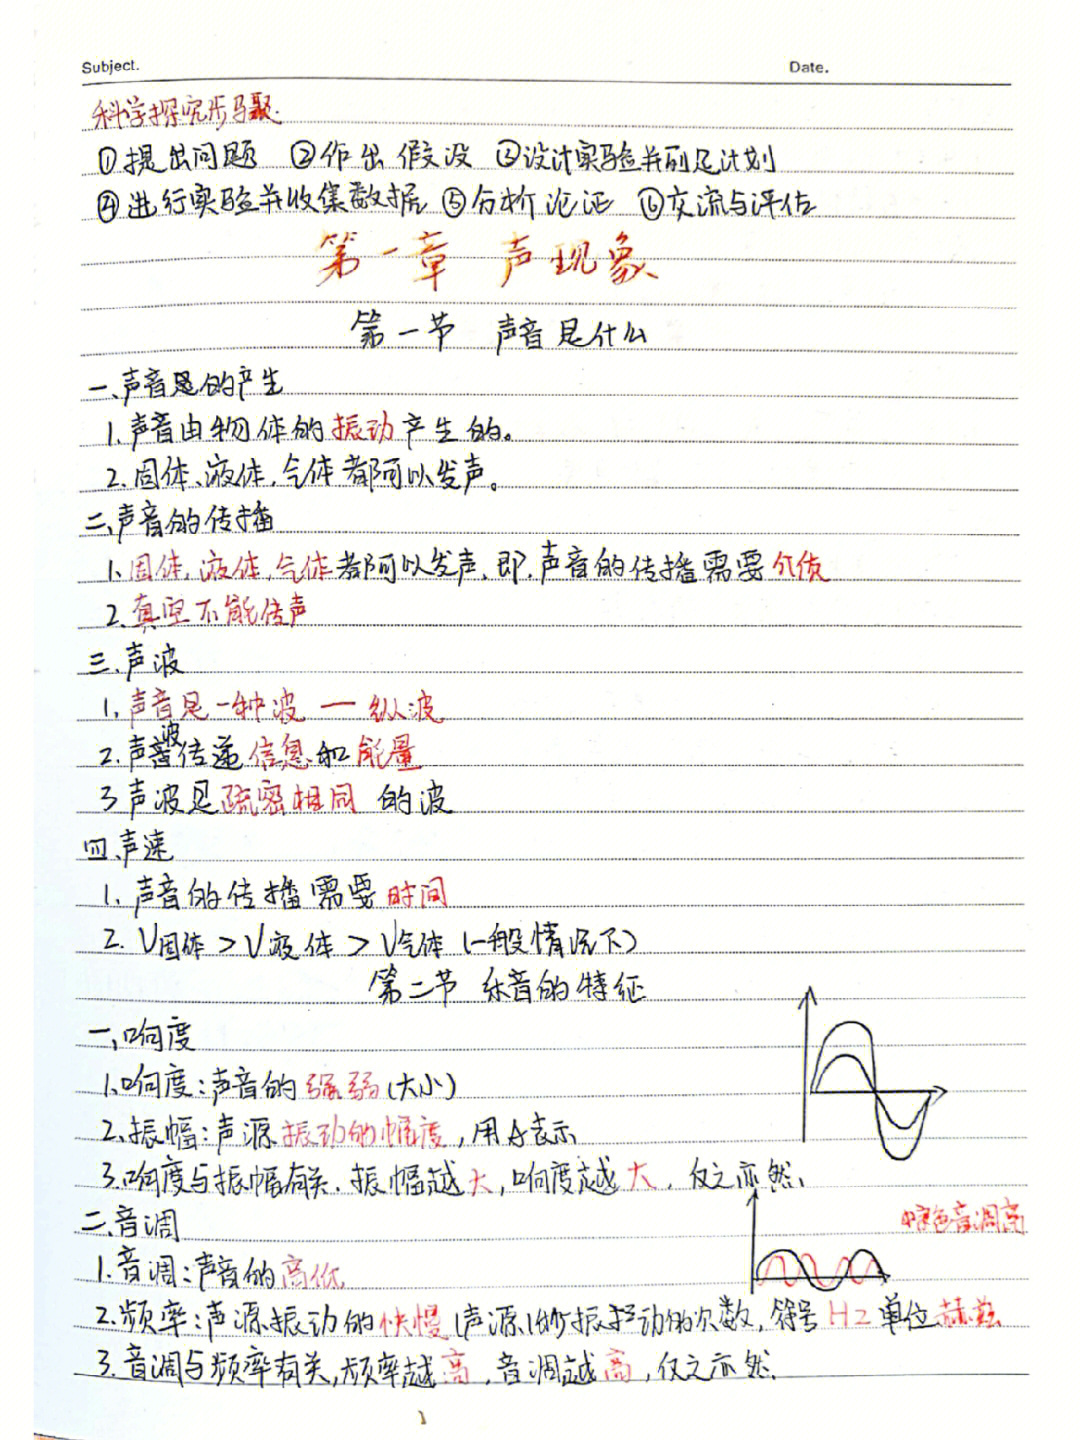 Subject.
Date.
科学探究步骤:
①提出问题 ②作出假设 ③设计实验并制定计划
④进行实验并收集数据 ⑤分析论证 ⑥交流与评估
第一章 声现象
第一节 声音是什么
一、声音的产生
1.声音由物体的振动产生的。
2.固体、液体,气体都可以发声。
二、声音的传播
1、固体,液体,气体都可以发声、即,声音的传播需要介质
2.真空不能传声
三.声波
1,声音是一种波 — 纵波
2.声波传递信息和能量
3声波是疏密相同 的波
四.声速
1. 声音的传播需要时间
2. V固体 > V液体 > V气体 (一般情况下)
第二节 乐音的特征
一、响度
1、响度:声音的强弱(大小)
2、振幅:声源振动的幅度,用A表示
3.响度与振幅有关.振幅越大,响度越大,反之亦然.
二、音调
红色音调高
1.音调:声音的高低
2.频率:声源振动的快慢(声源1秒振动的次数,符号Hz单位赫兹
3.音调与频率有关,频率越高,音调越高,反之亦然.
1